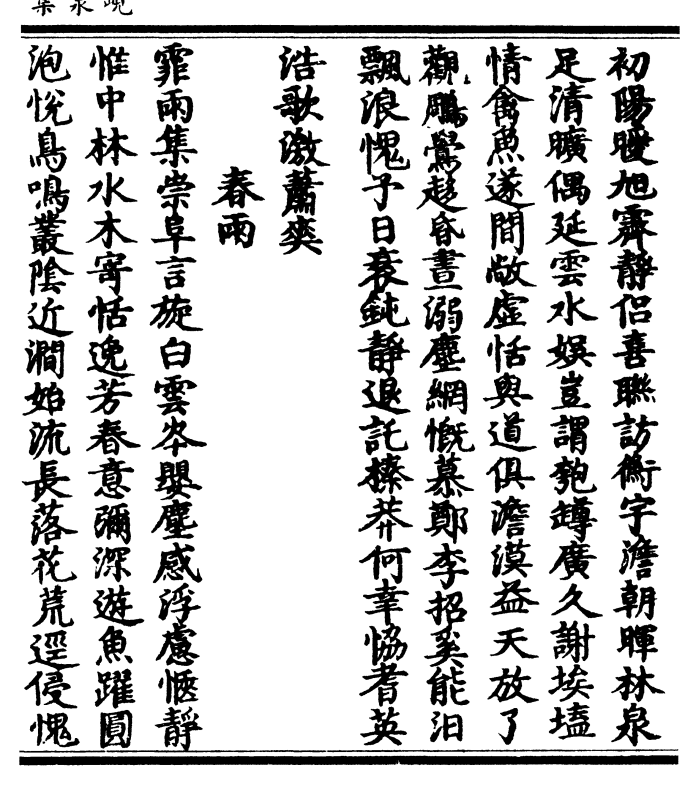 初陽曖旭霽靜侶喜聯訪衡宇澹朝暉林泉
足清曠偶延雲水娛豈謂匏罇廣久謝埃壒
情禽魚遂間敞虛恬與道俱澹漠益天放了
觀鵬鷽趍昏晝溺塵網慨慕鄭李招奚能汩
飄浪愧予日衰鈍靜退託榛莽何幸恊耆英
浩歌激蕭爽
春雨
霏雨集崇阜言旋白雲岑嬰塵感浮慮愜靜
惟中林水木寄恬逸芳春意彌深遊魚躍圓
泡悅鳥鳴叢陰近澗始流長落花荒逕侵愧